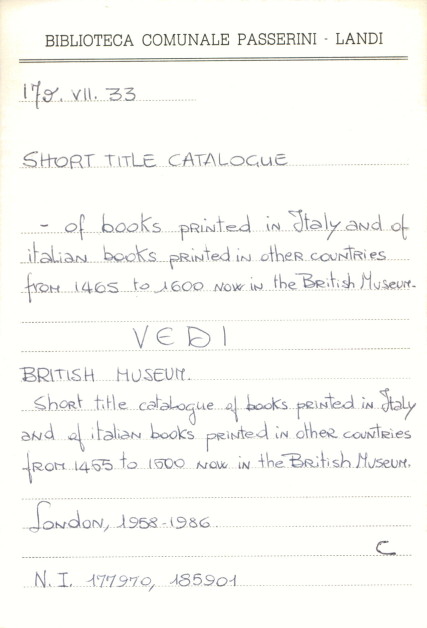 BIBLIOTECA COMUNALE PASSERINI - LANDI
179. VII. 33
SHORT TITLE CATALOGUE
- of books printed in Italy and of
italian books printed in other countries
from 1465 to 1600 now in the British Museum.
VEDI
BRITISH MUSEUM.
Short title catalogue of books printed in Italy
and of italian books printed in other countries
from 1465 to 1600 now in the British Museum.
London, 1958-1986.
C
N. I. 177970, 185901